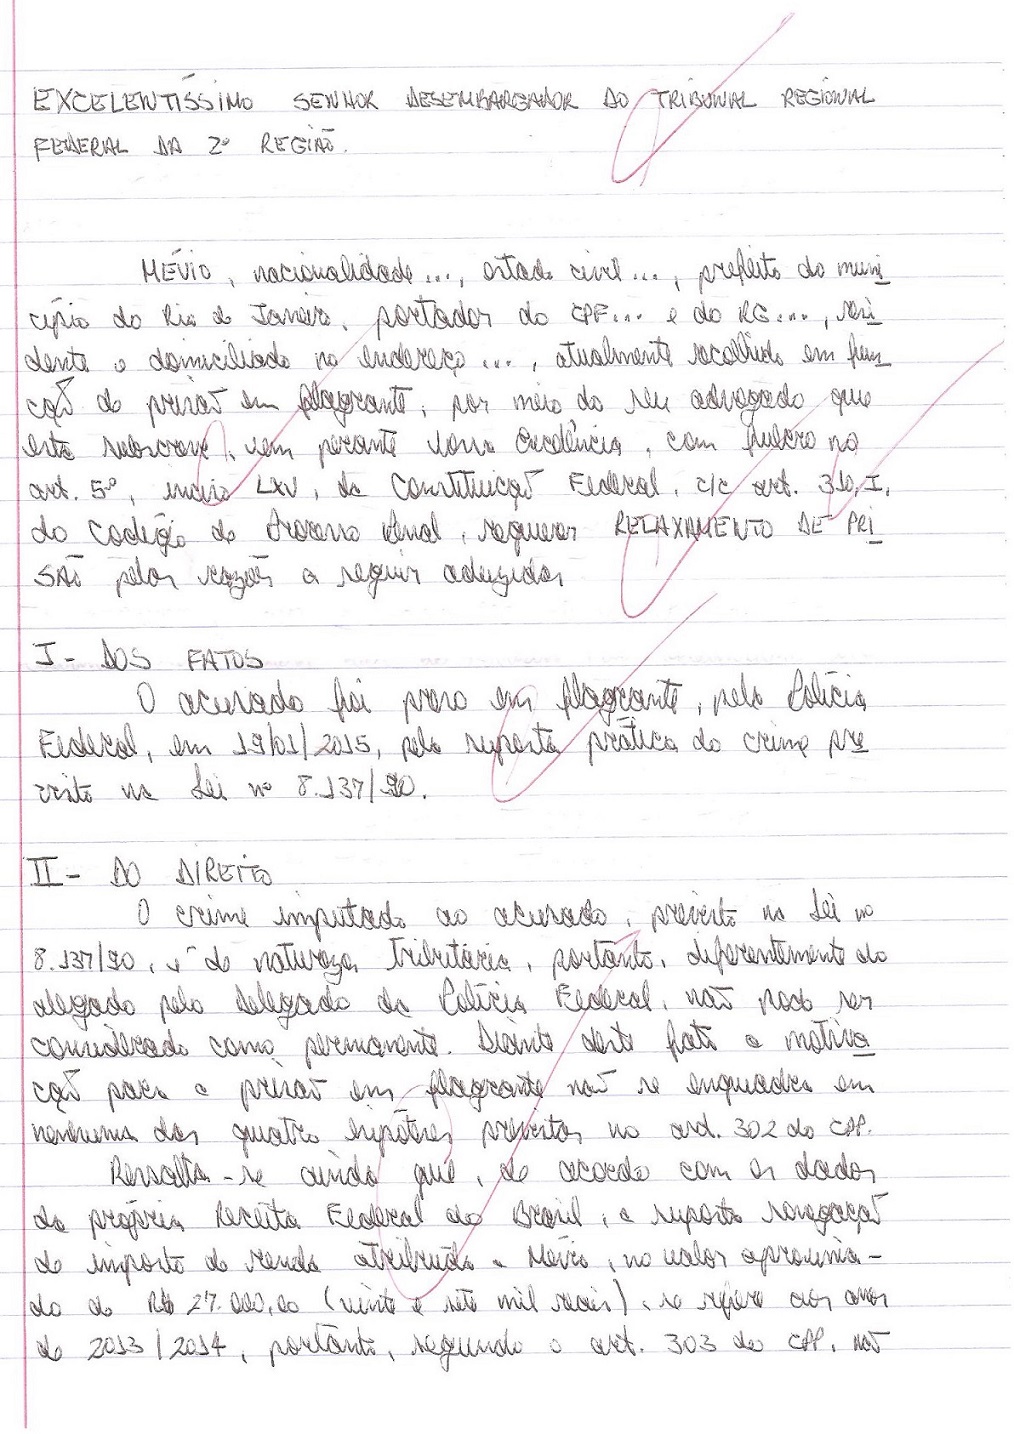 EXCELENTÍSSIMO SENHOR DESEMBARGADOR DO TRIBUNAL REGIONAL
FEDERAL DA 2º REGIÃO.
MÉVIO, nacionalidade..., estado civil..., prefeito do muni
cípio do Rio de Janeiro, portador do CPF... e do RG..., resi
dente e domiciliado no endereço ..., atualmente recolhido em fun
ção de prisão em flagrante, por meio do seu advogado que
esta subscreve, vem perante Vossa Excelência, com fulcro no
art. 5º, inciso LXV, da Constituição Federal, c/c art. 310, I,
do Codigo de Processo Penal, requerer RELAXAMENTO DE PRI
SÃO pelas razões a seguir aduzidas
I - DOS FATOS
O acusado foi preso em flagrante, pela Polícia
Federal, em 19/01/2015, pela suposta prática do crime pre
visto na Lei nº 8.137/90.
II - DO DIREITO
O crime imputado ao acusado, previsto na Lei nº
8.137/90, é de natureza tributária, portanto, diferentemente do
alegado pelo Delegado da Polícia Federal, não pode ser
considerado como permanente. Diante deste fato a motiva
ção para a prisão em flagrante não se enquadra em
nenhuma das quatro hipóteses previstas no art. 302 do CPP.
Ressalta-se ainda que, de acordo com os dados
da própria Receita Federal do Brasil, a suposta sonegação
de imposto de renda atribuída a Mévio, no valor aproxima-
do de R$ 27.000,00 (vinte e sete mil reais), se refere aos anos
de 2013/2014, portanto, segundo o art. 303 do CPP, não